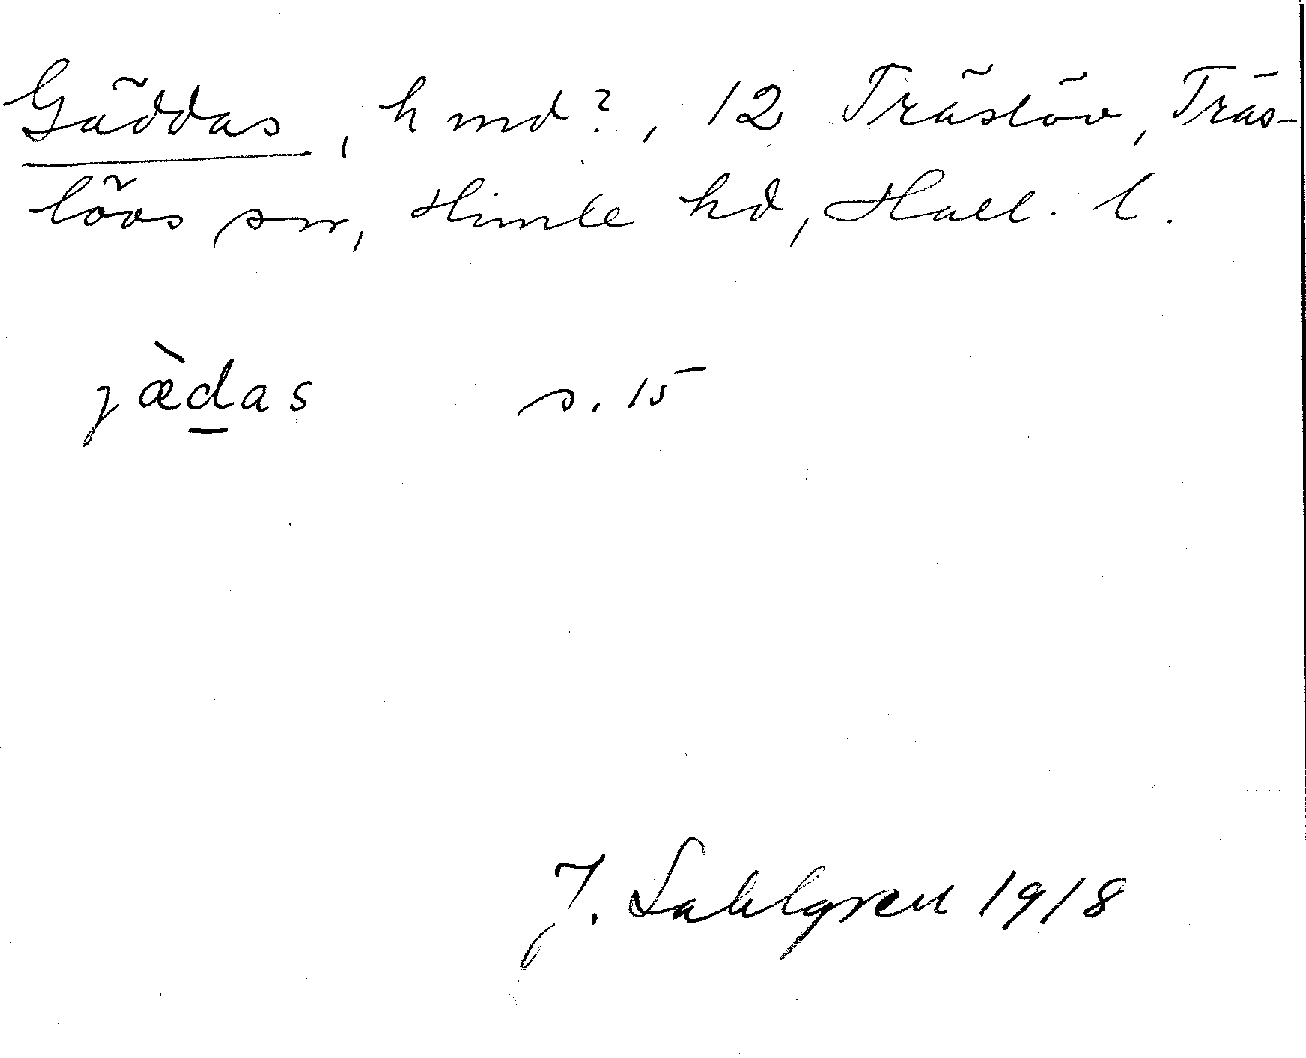 Gäddas, hmd?, 12 Träslöv, Träs-
lövs sn, Himle hd, Hall. l.
jæ̀d̲as s. 15
J. Sahlgren 1918